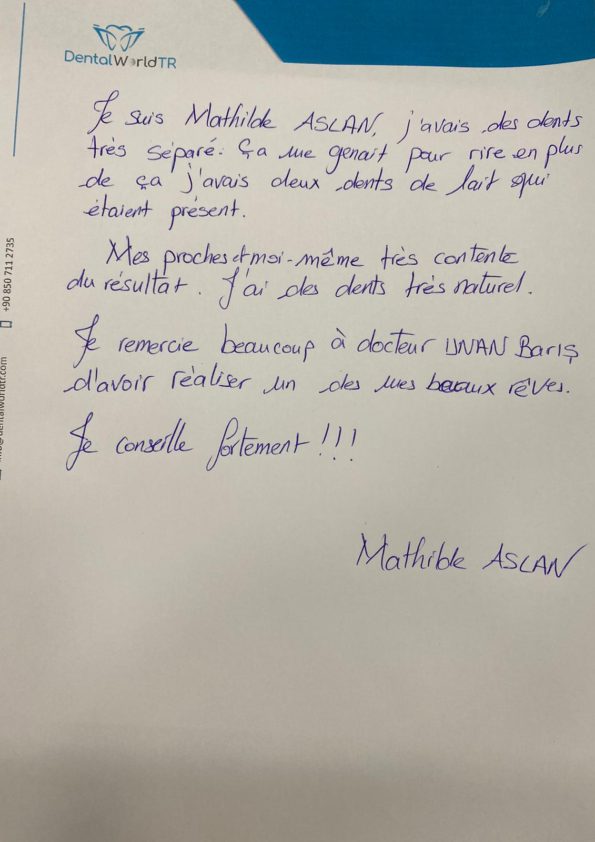 DentalWorldTR
Je suis Mathilde ASLAN, j'avais des dents
très séparé. Ça me genait pour rire en plus
de ça j'avais deux dents de lait qui
étaient présent.
Mes proches et moi-même très contente
du résultat. J'ai des dents très naturel.
Je remercie beaucoup à docteur UNAN Barış
d'avoir réaliser un des mes beaux rêves.
Je conseille fortement !!!
Mathilde ASLAN
+90 850 711 2735